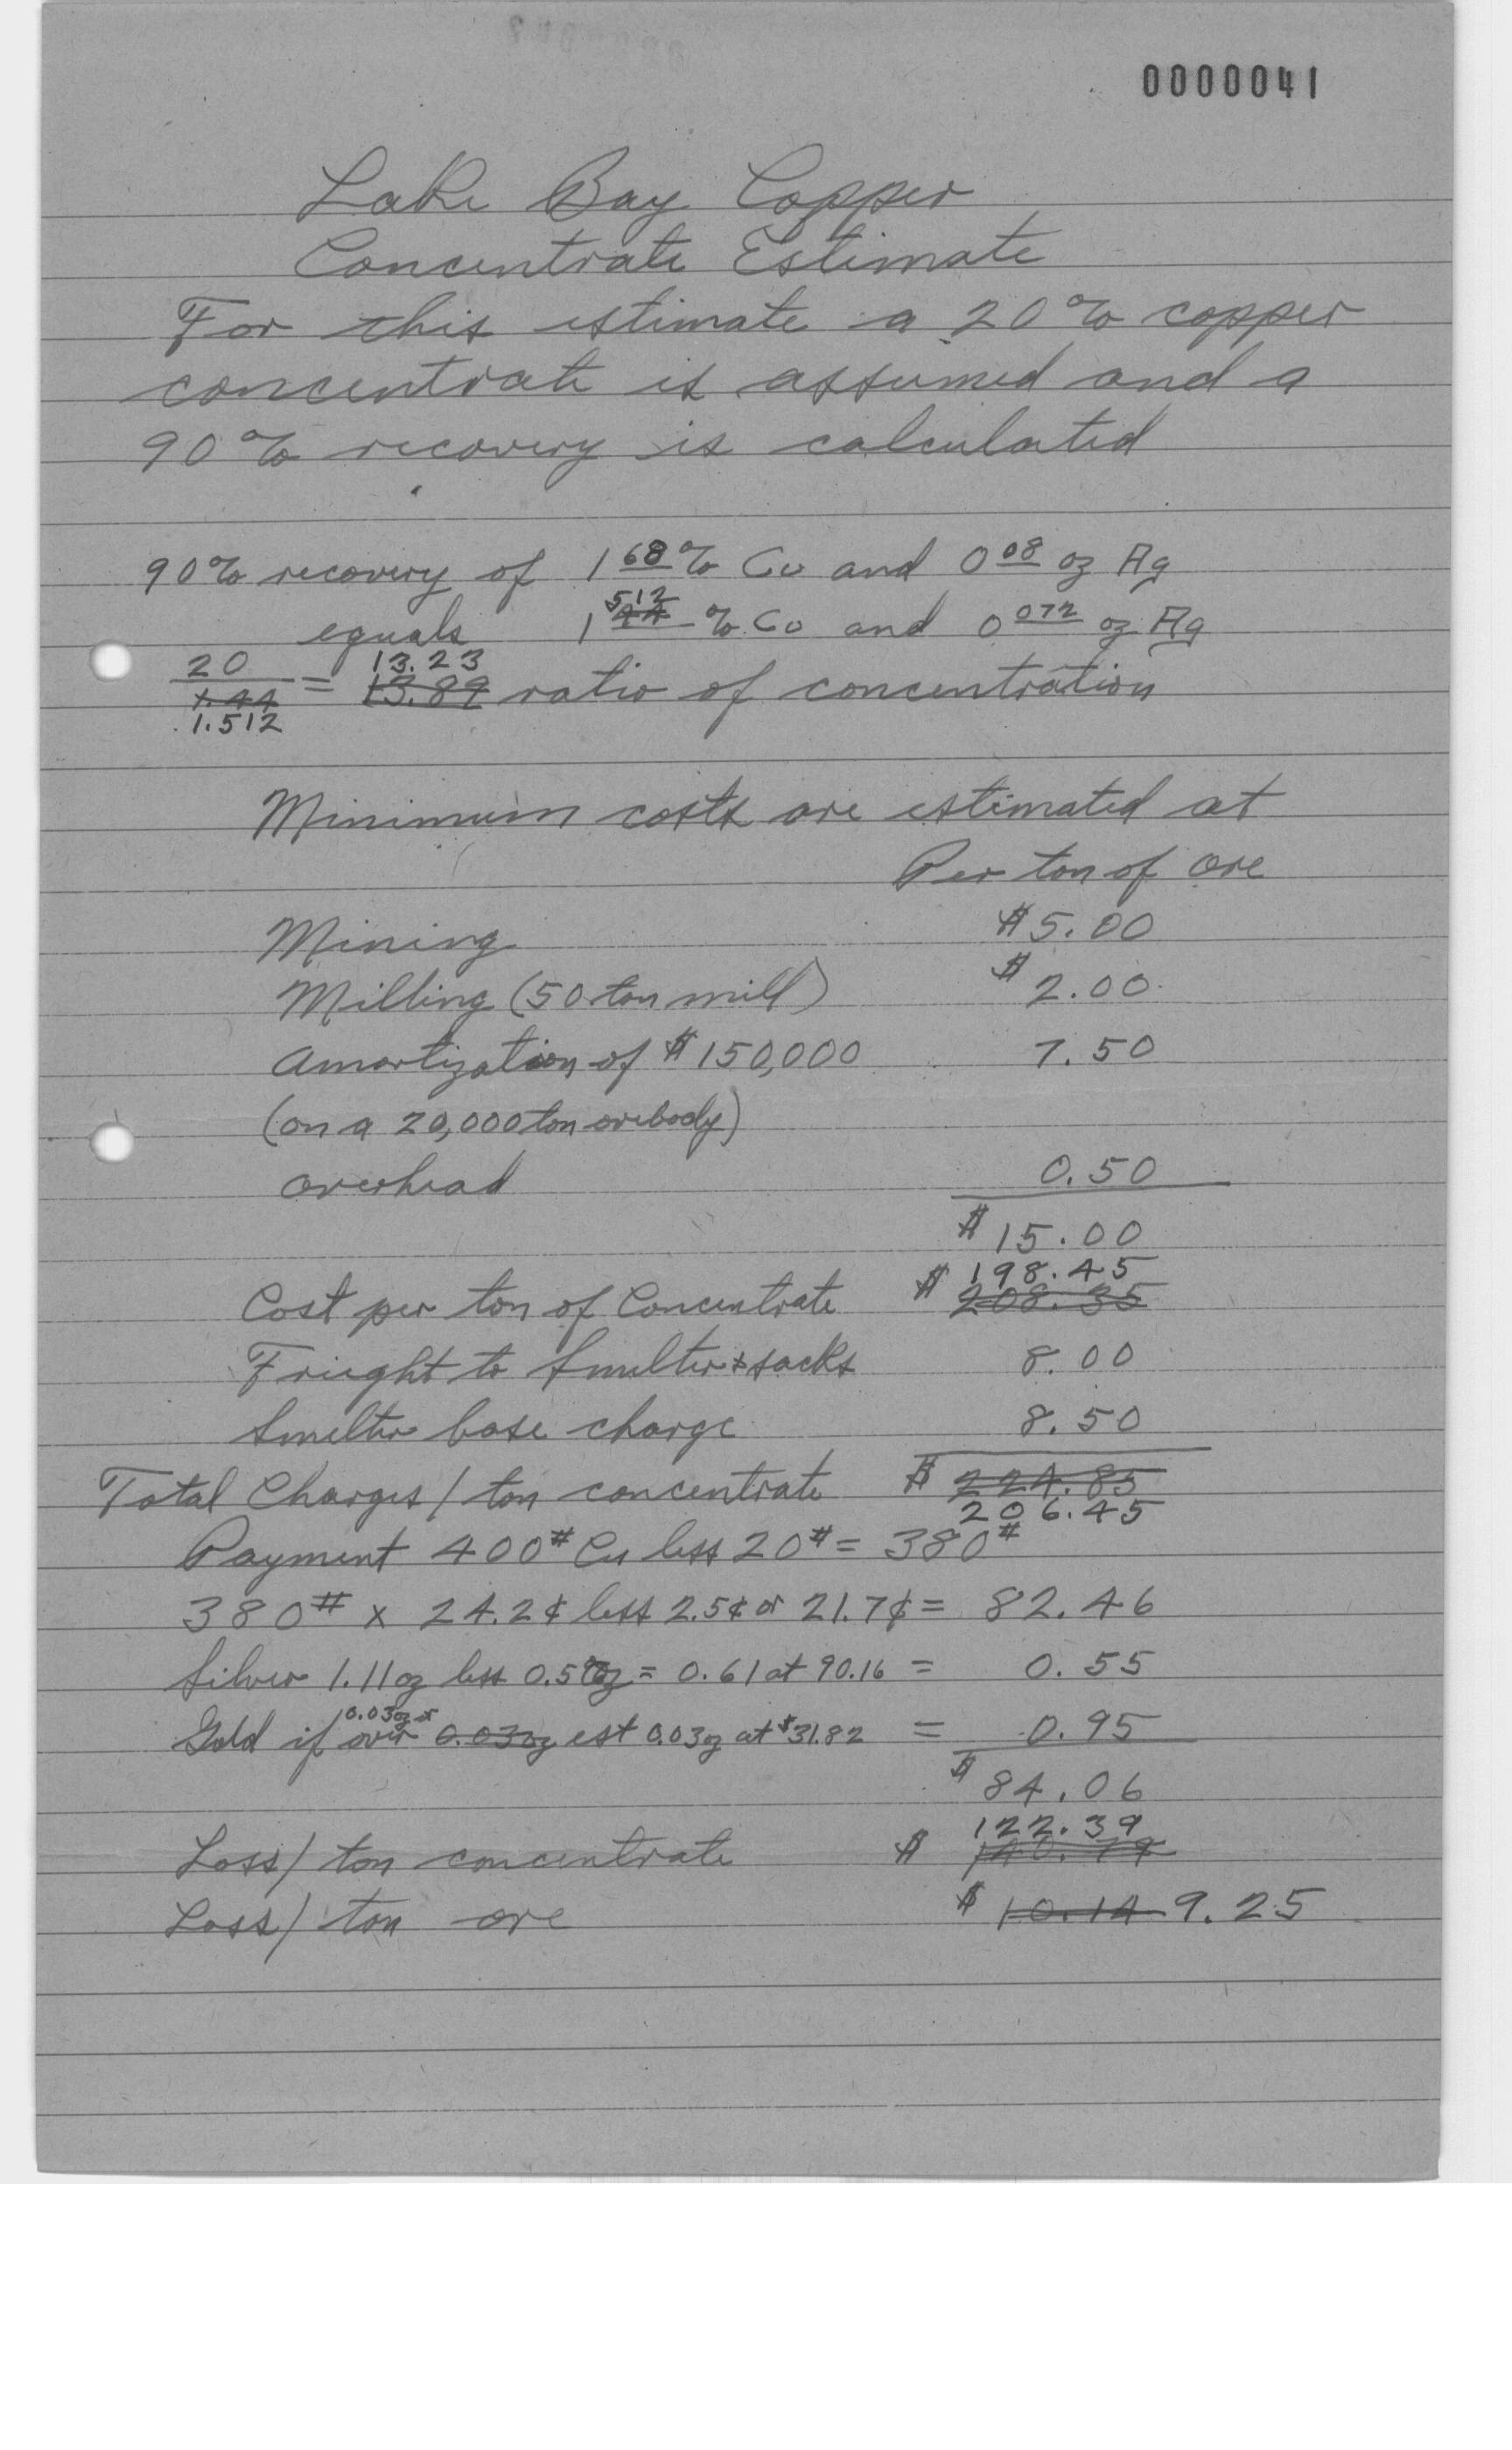 0000041
Lake Bay Copper
Concentrate Estimate
For this estimate a 20% copper
concentrate is assumed and a
90% recovery is calculated
90% recovery of 1 68% Cu and 0 08 oz Ag
512
equals 1 44 % Cu and 0 072 oz Ag
20 13.23
1.44 = 13.89 ratio of concentration
1.512
Minimum costs are estimated at
Per ton of ore
Mining $5.00
Milling (50 ton mill) $2.00
Amortization of $150,000 7.50
(on a 20,000 ton orebody)
overhead 0.50
$15.00
198.45
Cost per ton of Concentrate $ 208.35
Frieght to Smelter & sacks 8.00
Smelter base charge 8.50
Total Charges / ton concentrate $ 224.85
206.45
Payment 400# Cu less 20# = 380#
380# x 24.2¢ less 2.5¢ or 21.7¢ = 82.46
Silver 1.11 oz less 0.5 oz = 0.61 at 90.16 = 0.55
0.03oz or
Gold if over 0.03oz est 0.03oz at $31.82 = 0.95
$84.06
122.39
Loss / ton concentrate $ 140.79
Loss / ton ore $ 10.14 9.25